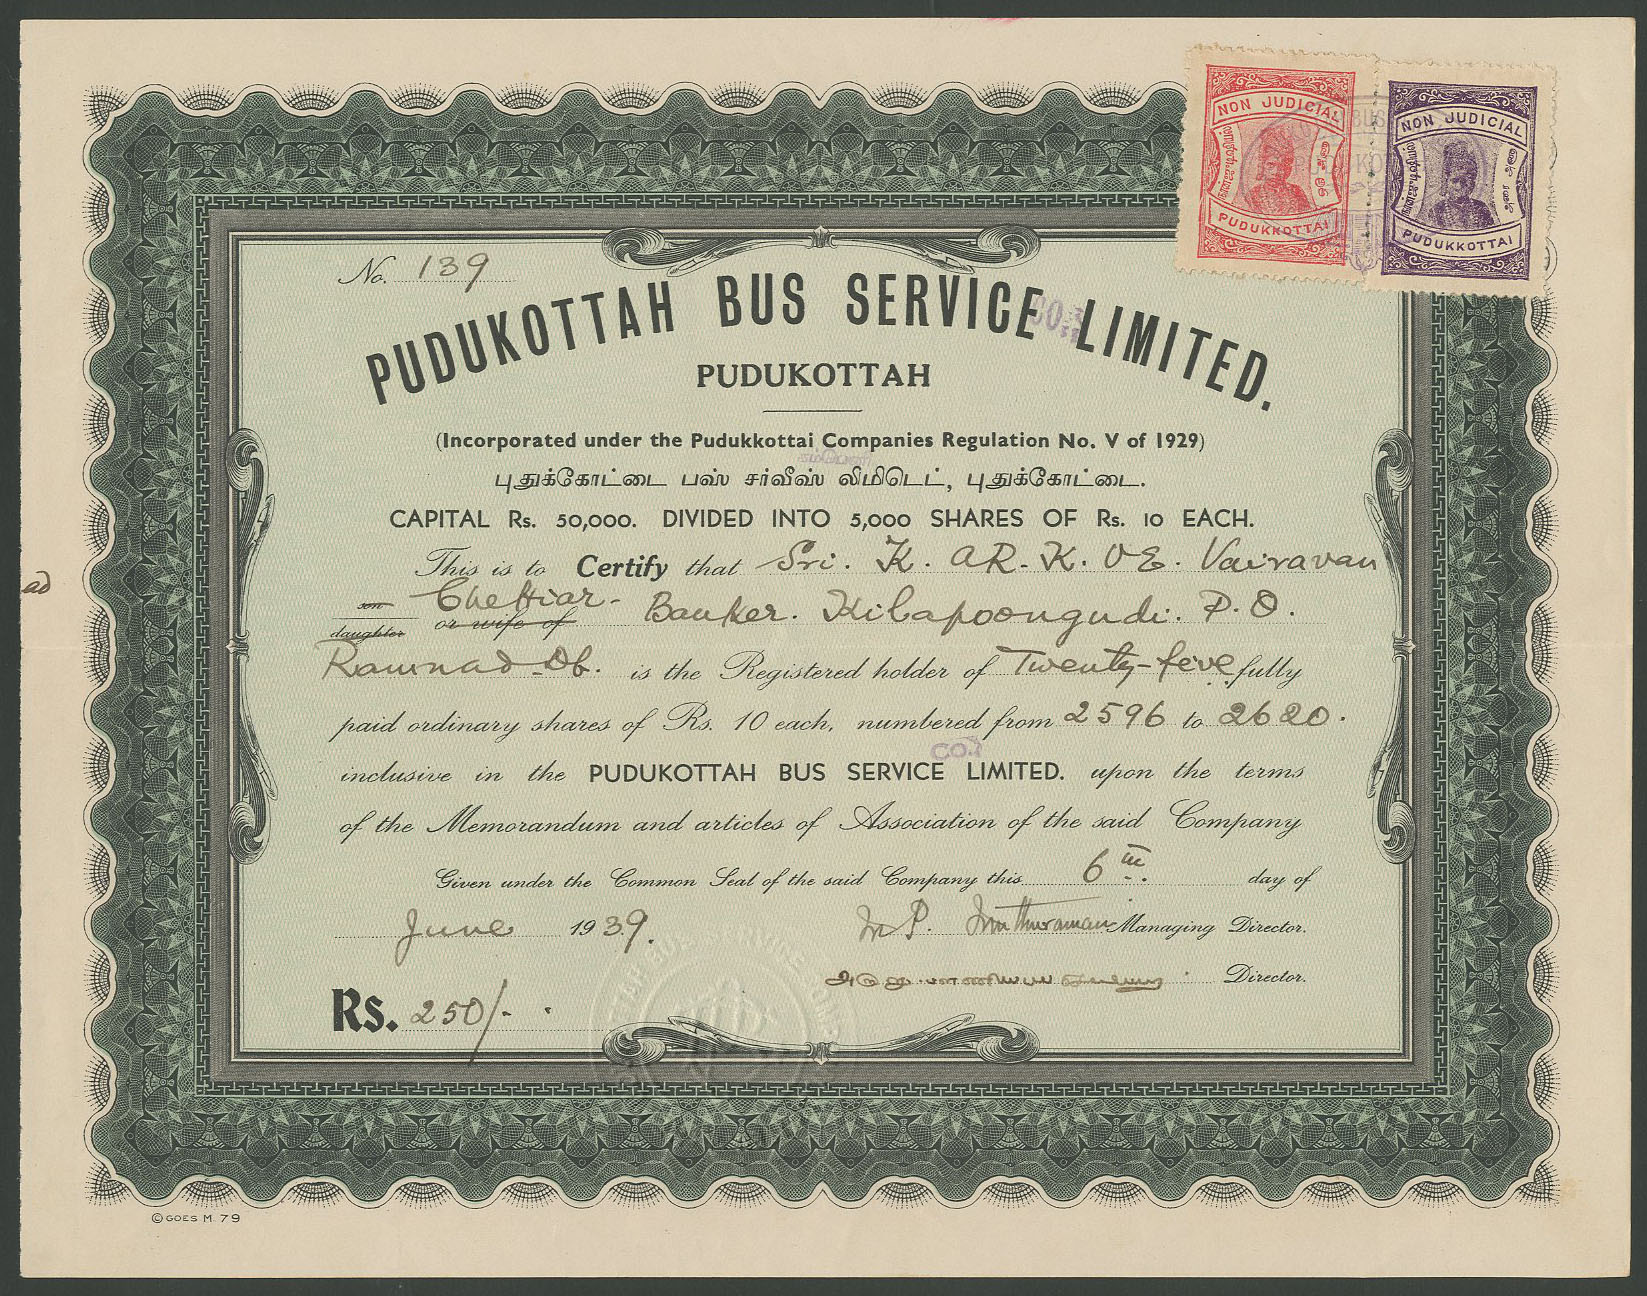 NON JUDICIAL
PUDUKKOTTAI
NON JUDICIAL
PUDUKKOTTAI
No. 139
PUDUKOTTAH BUS SERVICE LIMITED.
PUDUKOTTAH
(Incorporated under the Pudukkottai Companies Regulation No. V of 1929)
புதுக்கோட்டை பஸ் சர்வீஸ் லிமிடெட், புதுக்கோட்டை.
CAPITAL Rs. 50,000. DIVIDED INTO 5,000 SHARES OF Rs. 10 EACH.
This is to Certify that Sri. K. AR. K. V E. Vairavan
son daughter or wife of Chettiar - Banker. Kilapoongudi. P.O.
Ramnad Dt. is the Registered holder of Twenty-five fully
paid ordinary shares of Rs. 10 each, numbered from 2596 to 2620.
inclusive in the PUDUKOTTAH BUS SERVICE LIMITED. upon the terms
of the Memorandum and articles of Association of the said Company
Given under the Common Seal of the said Company this 6th. day of
June 1939. Managing Director.
Director.
Rs. 250/-
© GOES M. 79